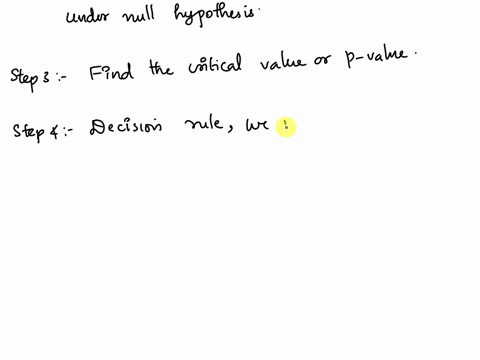 under null hypothesis.
Step 3:- Find the critical value or p-value.
Step 4:- Decision rule, we